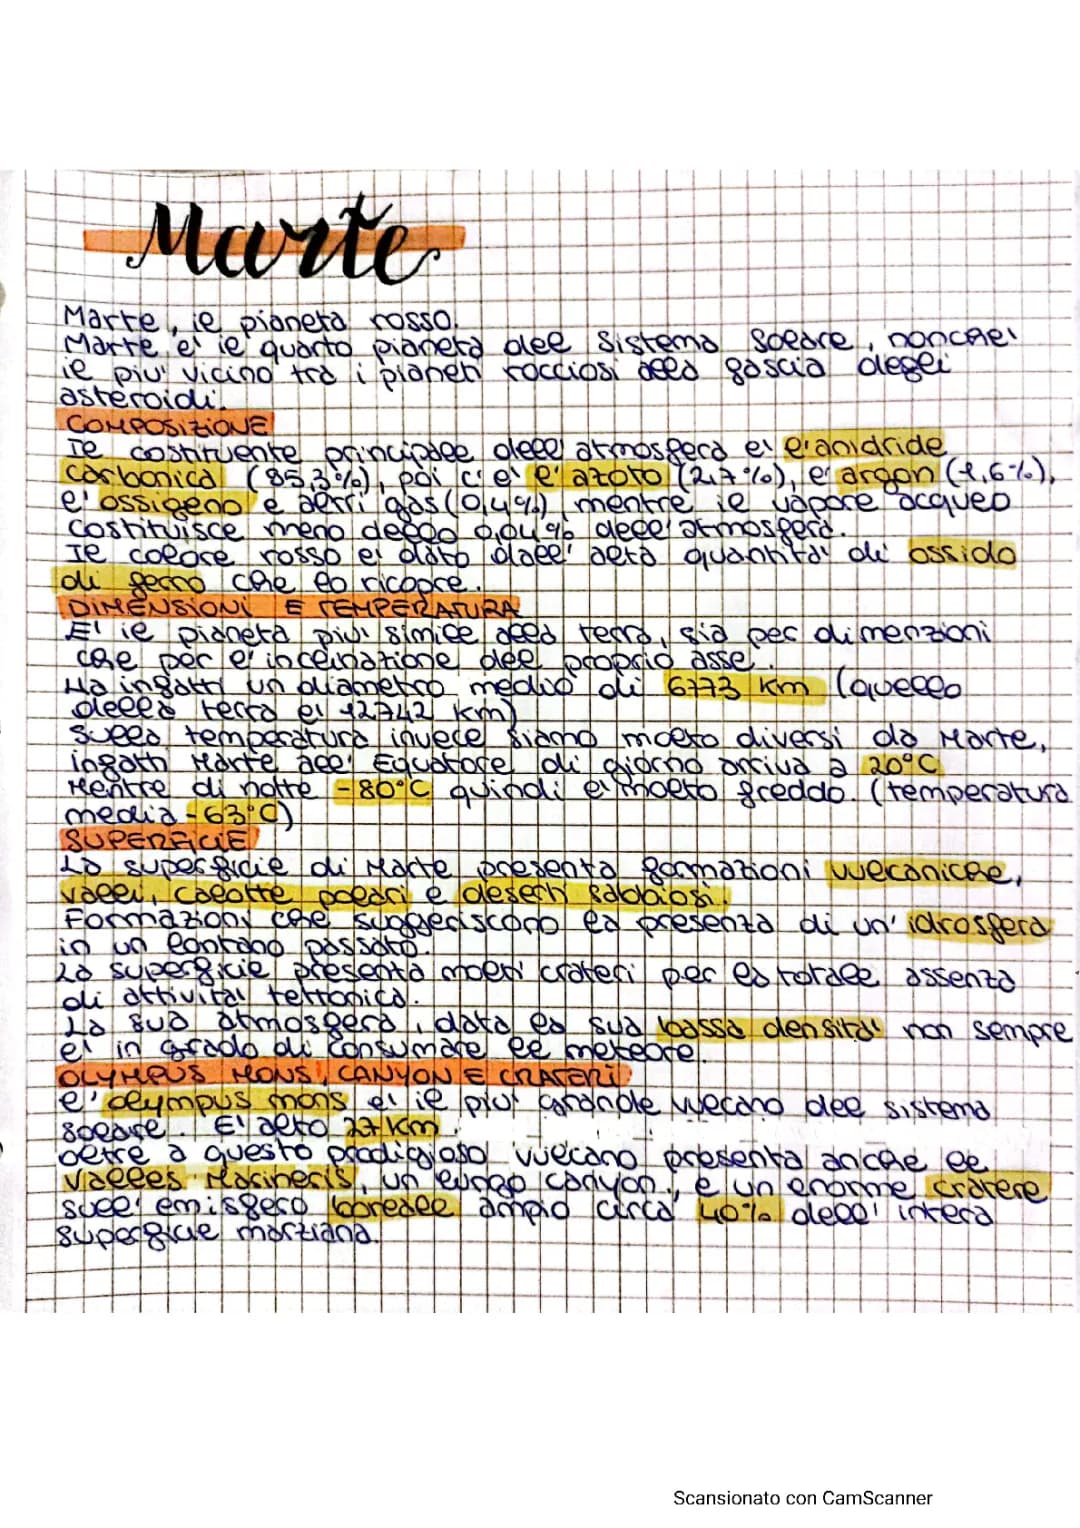 Marte
Marte, il pianeta rosso.
Marte e' il quarto pianeta del sistema solare, nonche'
il piu' vicino tra i pianeti rocciosi alla fascia degli
asteroidi.
COMPOSIZIONE
Il costituente principale dell' atmosfera e' l'anidride
carbonica (85,3%), poi c'e' l'azoto (2,7%), l'argon (1,6%),
l'ossigeno e altri gas (0,4%), mentre il vapore acqueo
costituisce meno dello 0,04% dell' atmosfera.
Il colore rosso e' dato dall' alta quantita' di ossido
di ferro che lo ricopre.
DIMENSIONI E TEMPERATURA
E' il pianeta piu' simile alla terra, sia per dimenzioni
che per l'inclinazione del proprio asse.
Ha infatti un diametro medio di 6773 Km (quello
della terra e' 12742 Km)
Sulla temperatura invece siamo molto diversi da Marte,
infatti Marte all' Equatore di giorno arriva a 20°C
Mentre di notte -80°C quindi e' molto freddo. (temperatura
media -63°C)
SUPERFICIE
La superficie di Marte presenta formazioni vulcaniche,
valli, calotte polari e deserti sabbiosi.
Formazioni che suggeriscono la presenza di un' idrosfera
in un lontano passato.
La superficie presenta molti crateri per la totale assenza
di attivita' tettonica.
La sua atmosfera, data la sua bassa densita' non sempre
e' in grado di consumare le meteore.
OLYMPUS MONS, CANYON E CRATERI
L'olympus mons e' il piu' grande vulcano del sistema
solare. E' alto 27 Km.
Oltre a questo prodigioso vulcano presenta anche le
Valles Marineris, un lungo canyon, e un enorme cratere
sull' emisfero boreale ampio circa 40% dell' intera
superficie marziana.
Scansionato con CamScanner